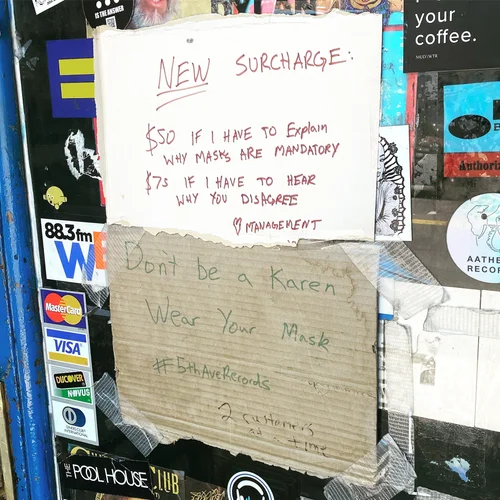 IS THE ANSWER
your
coffee.
NEW SURCHARGE:
$50 IF I HAVE TO Explain
WHY MASKS ARE MANDATORY
$75 IF I HAVE TO HEAR
WHY YOU DISAGREE
♡ MANAGEMENT
88.3fm
W
Don't be a Karen
Wear Your Mask
#5thAveRecords
2 customers
at a time
Authoriz
AATHE
RECOR
MasterCard
VISA
DISCOVER
NOVUS
DINERS CLUB
INTERNATIONAL
THE POOL HOUSE
CLUB